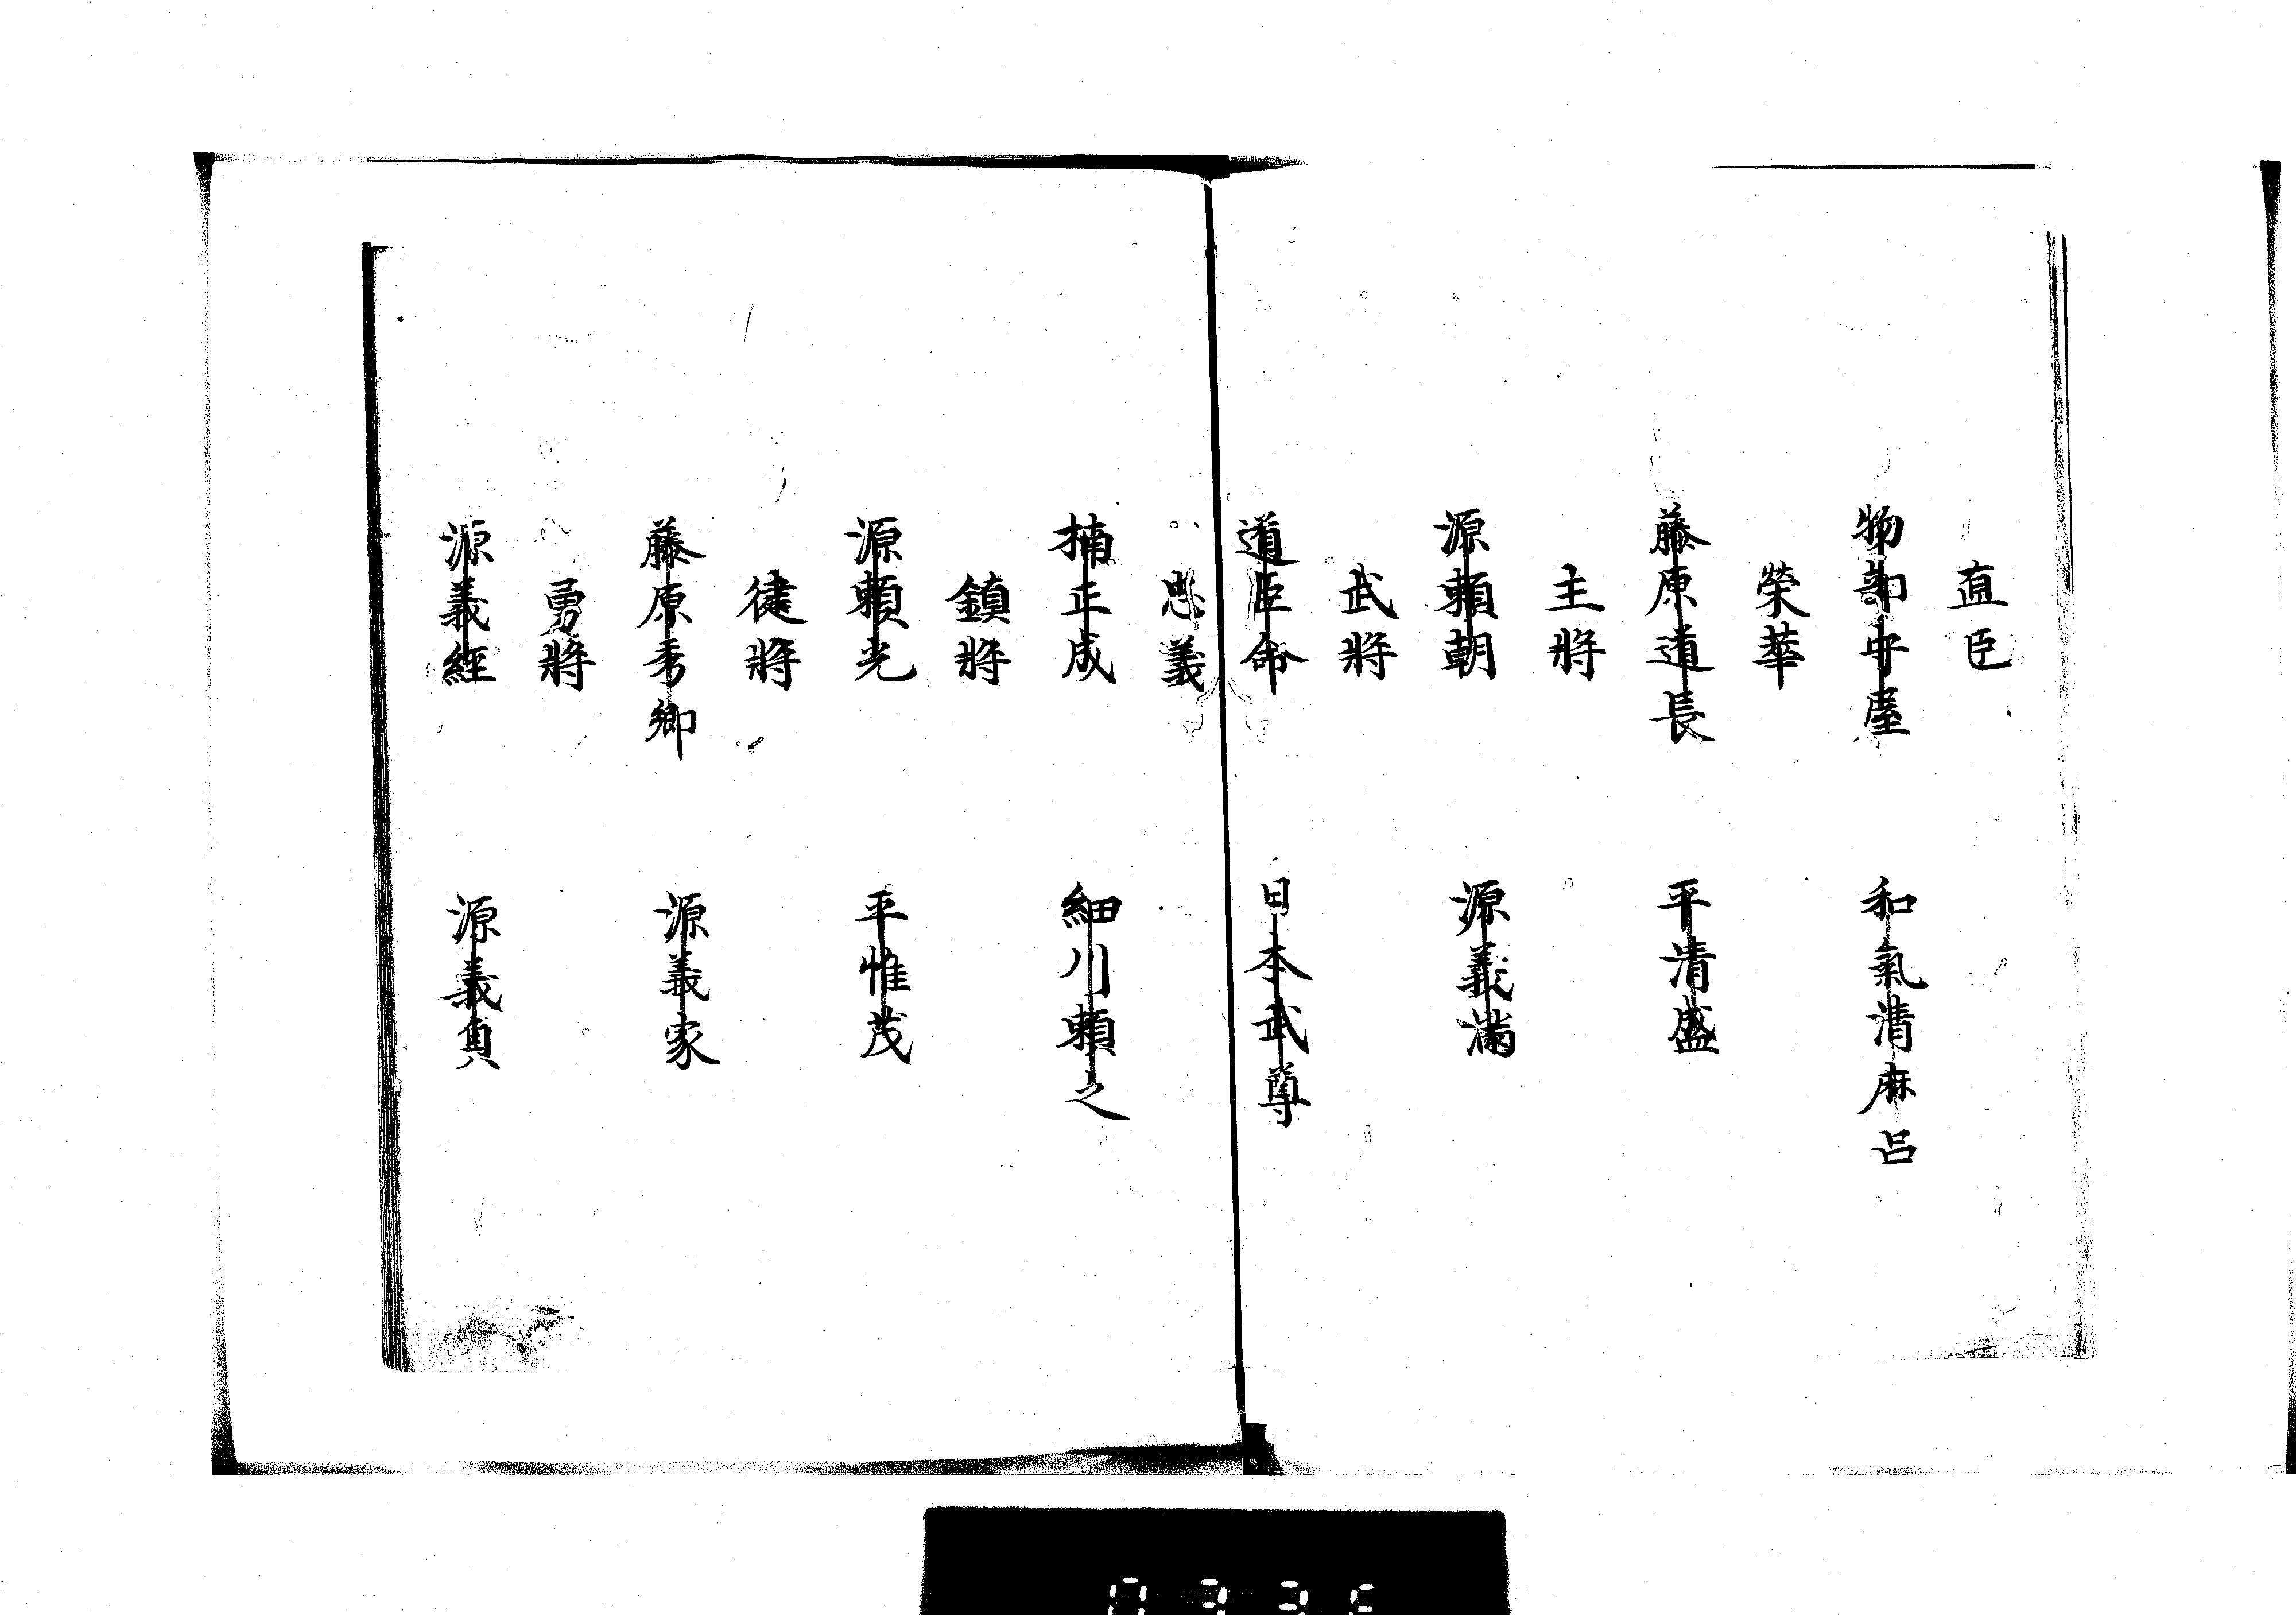 直臣
物部守屋　和氣清麻呂
榮華
藤原道長　平清盛
主將
源賴朝　源義滿
武將
道臣命　日本武尊
忠義
楠正成　細川賴之
鎮將
源賴光　平惟茂
健將
藤原秀鄉　源義家
勇將
源義經　源義貞